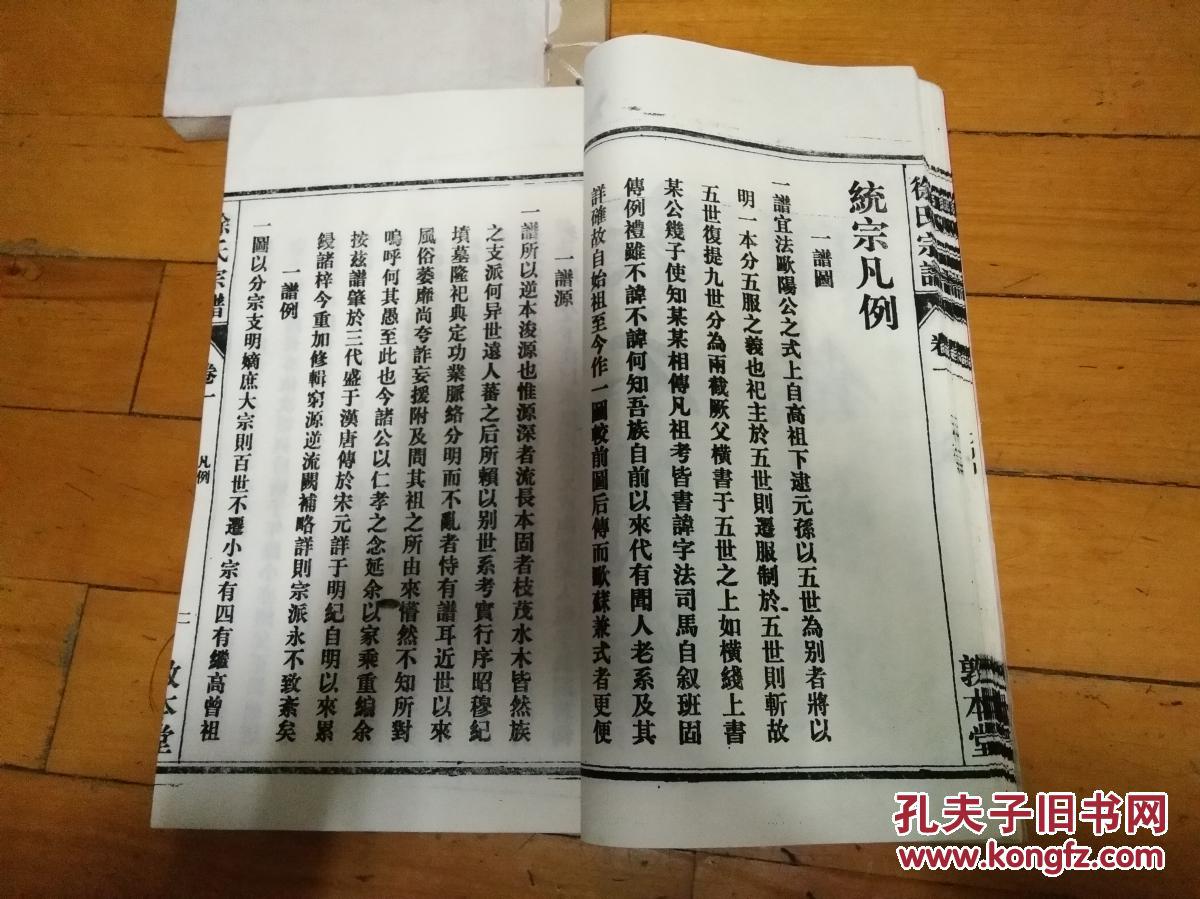 徐氏宗譜
卷一
敦本堂
統宗凡例
一譜圖
一譜宜法歐陽公之式上自高祖下逮元孫以五世為別者將以
明一本分五服之義也祀主於五世則遷服制於五世則斬故
五世復提九世分為兩截厥父橫書于五世之上如橫綫上書
某公幾子使知某某相傳凡祖考皆書諱字法司馬自叙班固
傳例禮雖不諱不諱何知吾族自前以來代有聞人老系及其
詳確故自始祖至今作一圖較前圖后傳而歐蘇兼式者更便
一譜源
一譜所以逆本浚源也惟源深者流長本固者枝茂水木皆然族
之支派何异世遠人蕃之后所賴以別世系考實行序昭穆紀
墳墓隆祀典定功業脈絡分明而不亂者恃有譜耳近世以來
風俗萎靡尚夸詐妄援附及問其祖之所由來懵然不知所對
嗚呼何其愚至此也今諸公以仁孝之念延余以家乘重編余
按兹譜肇於三代盛于漢唐傳於宋元詳于明紀自明以來累
鋟諸梓今重加修輯窮源逆流闕補略詳則宗派永不致紊矣
一譜例
一圖以分宗支明嫡庶大宗則百世不遷小宗有四有繼高曾祖
徐氏宗譜
卷一
凡例
二
敦本堂
孔夫子旧书网
www.kongfz.com